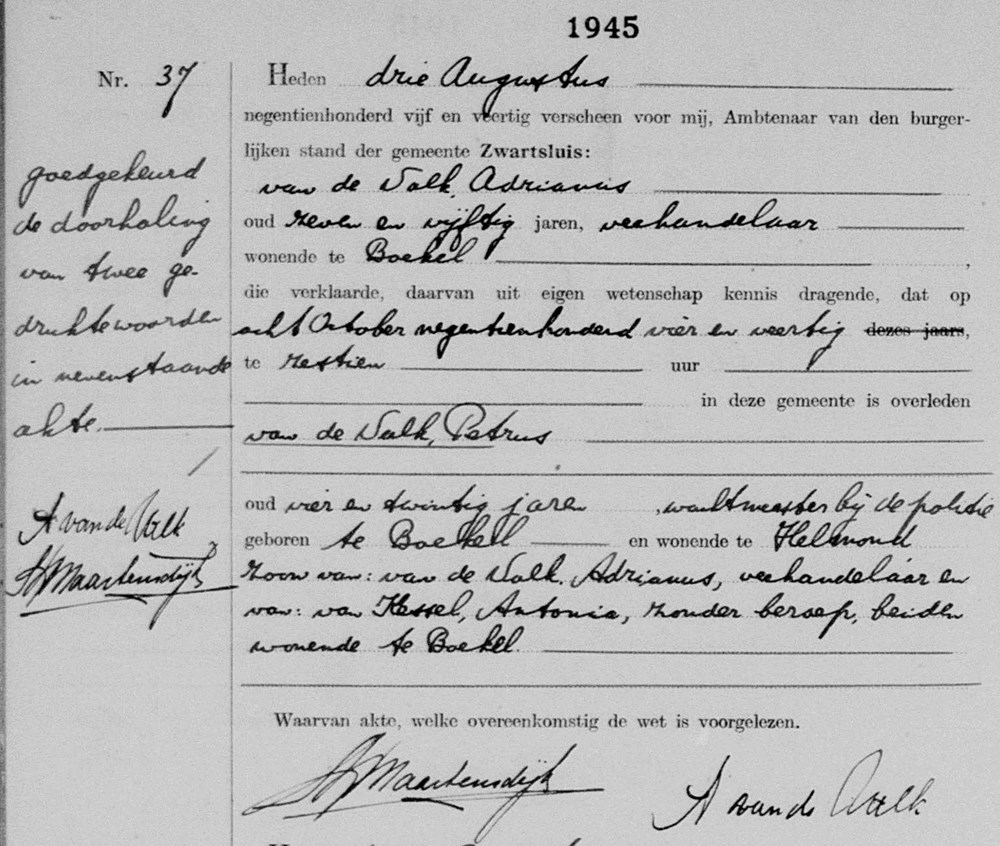 1945
Nr. 37
goedgekeurd
de doorhaling
van twee ge-
drukte woorden
in nevenstaande
akte.
A van de Valk
Maartensdijk
Heden drie Augustus
negentienhonderd vijf en veertig verscheen voor mij, Ambtenaar van den burger-
lijken stand der gemeente Zwartsluis:
van de Valk, Adrianus
oud zeven en vijftig jaren, veehandelaar
wonende te Boekel ,
die verklaarde, daarvan uit eigen wetenschap kennis dragende, dat op
acht October negentienhonderd vier en veertig dezes jaars,
te zestien uur
in deze gemeente is overleden
van de Valk, Petrus
oud vier en twintig jaren , wachtmeester bij de politie
geboren te Boekel en wonende te Helmond
zoon van: van de Valk, Adrianus, veehandelaar en
van: van Kessel, Antonia, zonder beroep, beiden
wonende te Boekel.
Waarvan akte, welke overeenkomstig de wet is voorgelezen.
Maartensdijk
A van de Valk